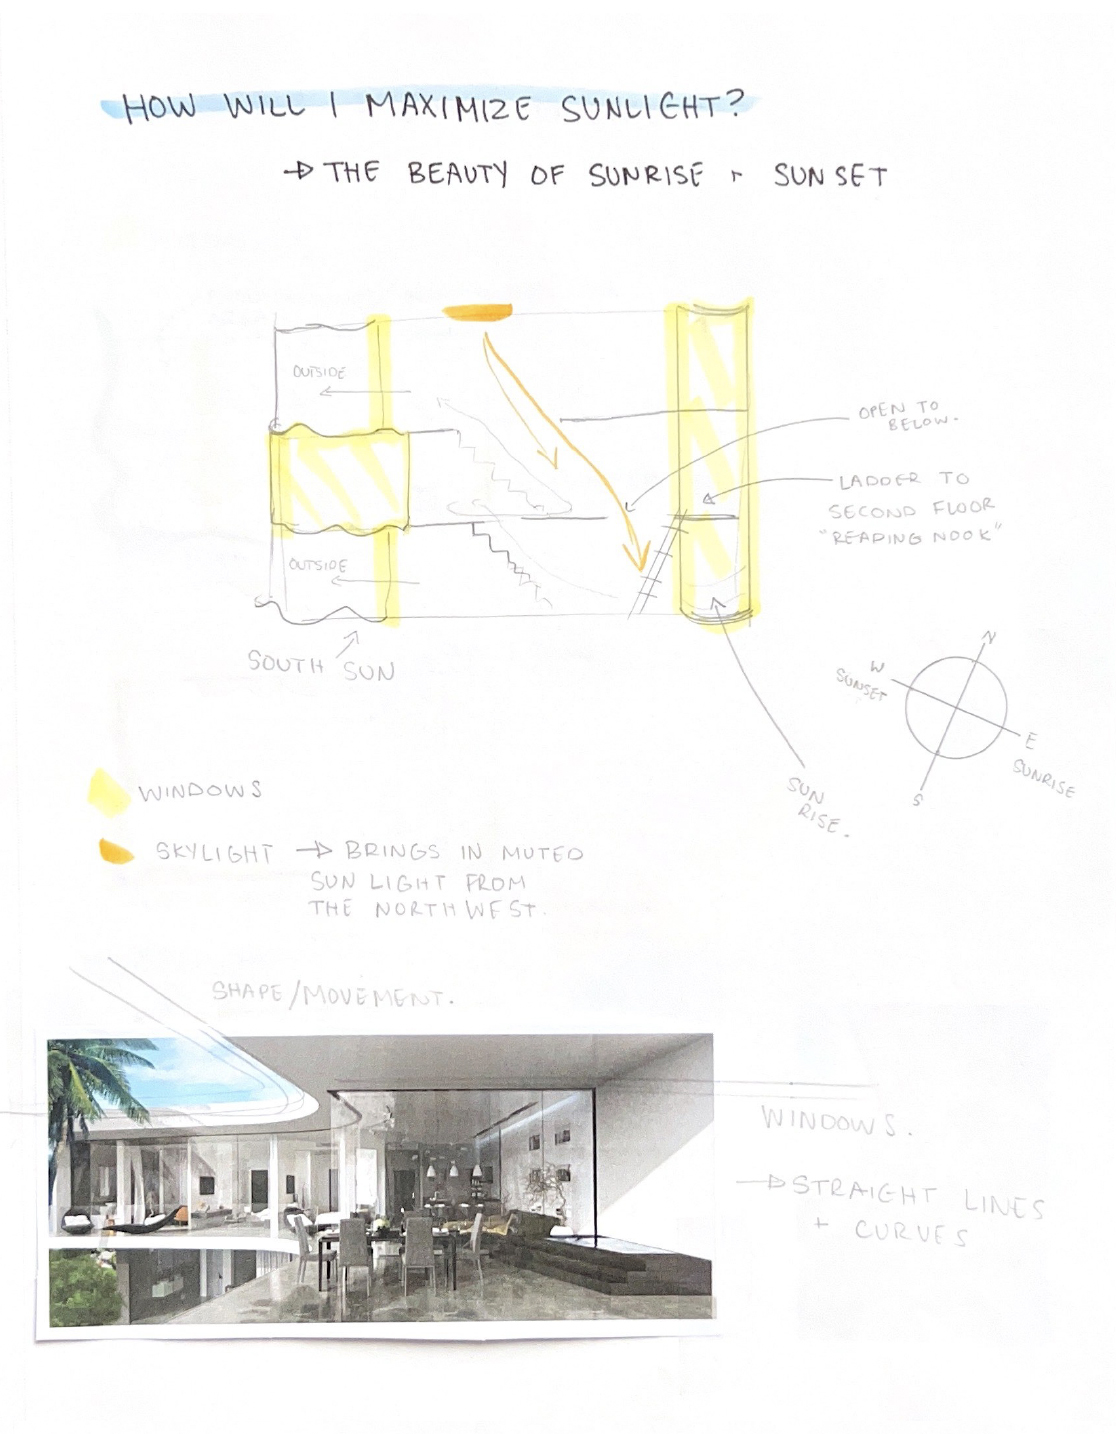 HOW WILL I MAXIMIZE SUNLIGHT?
→ THE BEAUTY OF SUNRISE + SUNSET
OUTSIDE
OPEN TO
BELOW.
LADDER TO
SECOND FLOOR
"READING NOOK"
OUTSIDE
SOUTH SUN
N
W
SUNSET
E
SUNRISE
S
SUN
RISE.
WINDOWS
SKYLIGHT → BRINGS IN MUTED
SUN LIGHT FROM
THE NORTHWEST.
SHAPE/MOVEMENT.
WINDOWS.
→ STRAIGHT LINES
+ CURVES